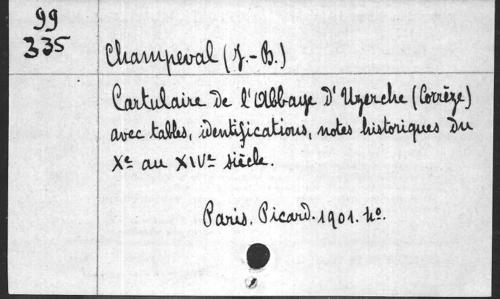 99
335
Champeval (J.-B.)
Cartulaire de l'Abbaye d'Uzerche (Corrèze)
avec tables, identifications, notes historiques du
Xe au XIVe siècle.
Paris. Picard. 1901. 4o.